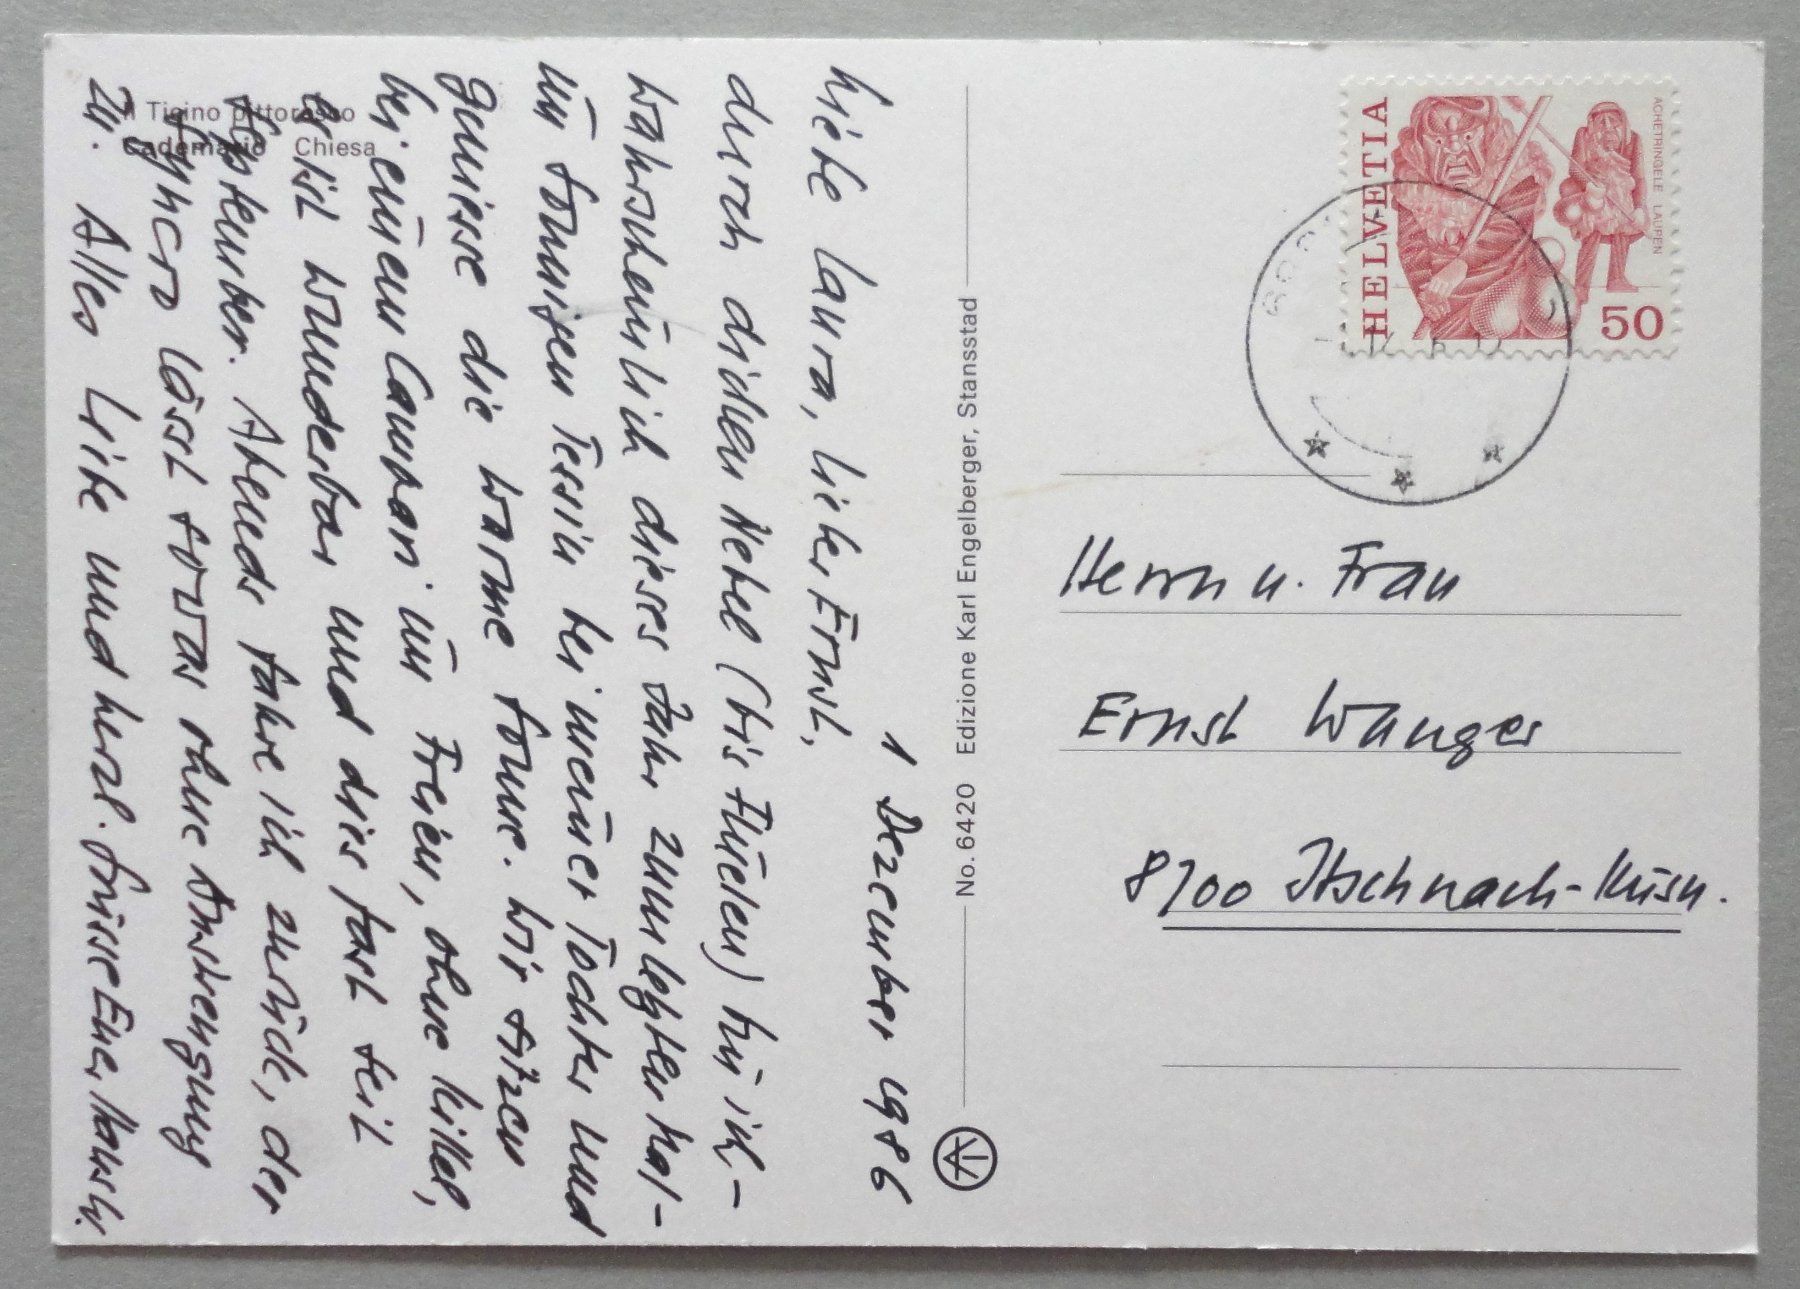 Il Ticino pittoresco
Cademario Chiesa
1 Dezember 1986
Liebe Laura, lieber Ernst,
durch dicken Nebel (bis Flüelen) bin ich -
wahrscheinlich dieses Jahr zum letzten Mal -
im sonnigen Tessin bei meiner Tochter und
geniesse die warme Sonne. Wir sitzen
bei einem Campari im Freien, ohne Kittel,
es ist wunderbar und dies fast seit
September. Abends fahre ich zurück, der
Synchro lässt sowas ohne Anstrengung
zu. Alles Liebe und herzl. Grüsse Euer
No. 6420 Edizione Karl Engelberger, Stansstad
HELVETIA
ACHETRINGELE LAUPEN
50
Herrn u. Frau
Ernst Wanger
8700 Itschnach-Küsn.